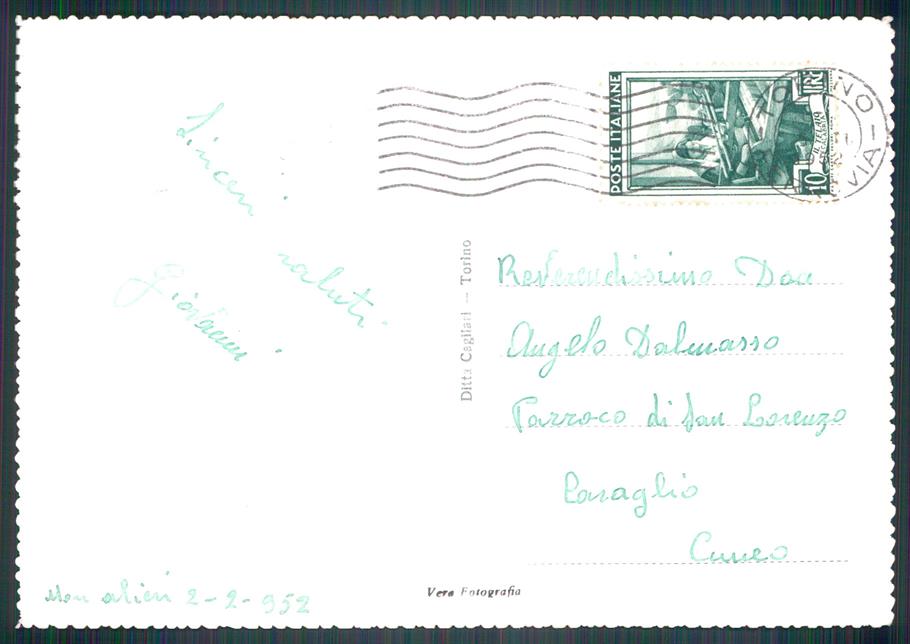 Sinceri saluti
Giovanni
Moncalieri 2-2-952
POSTE ITALIANE
LIRE
10
TORINO
Ditta Cagliari — Torino
Reverendissimo Don
Angelo Dalmasso
Parroco di San Lorenzo
Caraglio
Cuneo
Vera Fotografia